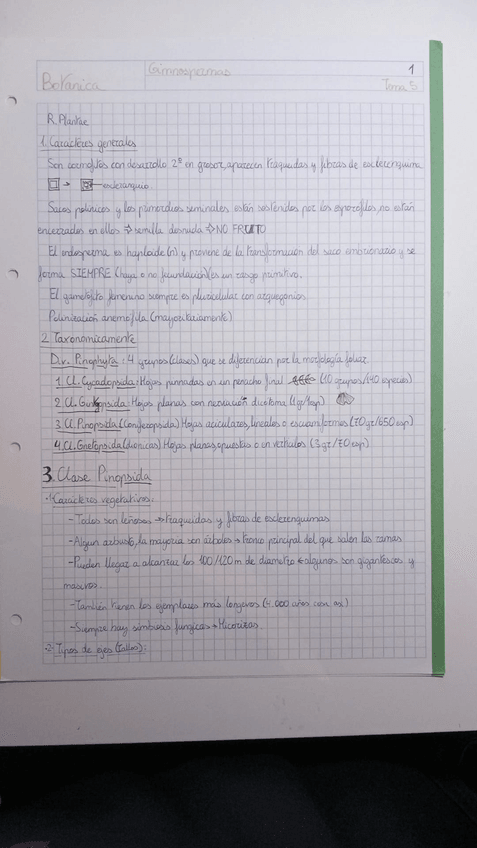 Gimnospermas
1
Botanica
Tema 5
R. Plantae
1. Carácteres generales
Son cormofitos con desarrollo 2º en grosor, aparecen traqueidas y fibras de esclerenquima
esclerenquima
Sacos polínicos y los primordios seminales están sostenidos por los esporofilos, no están
encerrados en ellos ⇒ semilla desnuda ⇒ NO FRUTO
El endosperma es haploide (n) y proviene de la transformación del saco embrionario y se
forma SIEMPRE (haya o no fecundación) es un rasgo primitivo.
El gametofito femenino siempre es pluricelular con arquegonios
Polinización anemófila (mayoritariamente)
2. Taxonomicamente
Div. Pinophyta: 4 grupos (clases) que se diferencian por la morfología foliar
1. Cl. Cycadopsida: Hojas pinnadas en un penacho final (10 grupos/140 especies)
2. Cl. Ginkgopsida: Hojas planas con nerviación dicotoma (1g/1sp)
3. Cl. Pinopsida (Coniferopsida) Hojas aciculares, lineales o escuamiformes (70 gr/650 esp)
4. Cl. Gnetopsida (dioicas) Hojas planas, opuestas o en verticilos (3 gr/70 esp)
3. Clase Pinopsida
·1 Carácteres vegetativos:
- Todos son leñosos → Traqueidas y fibras de esclerenquimas
- Algun arbusto, la mayoria son árboles → Tronco principal del que salen las ramas
- Pueden llegar a alcanzar los 100/120 m de diametro algunos son gigantescos y
masivos.
- También tienen los ejemplares más longevos (4.000 años casi así)
- Siempre hay simbiosis fungicas → Micorrizas.
·2 Tipos de ejes (tallos):